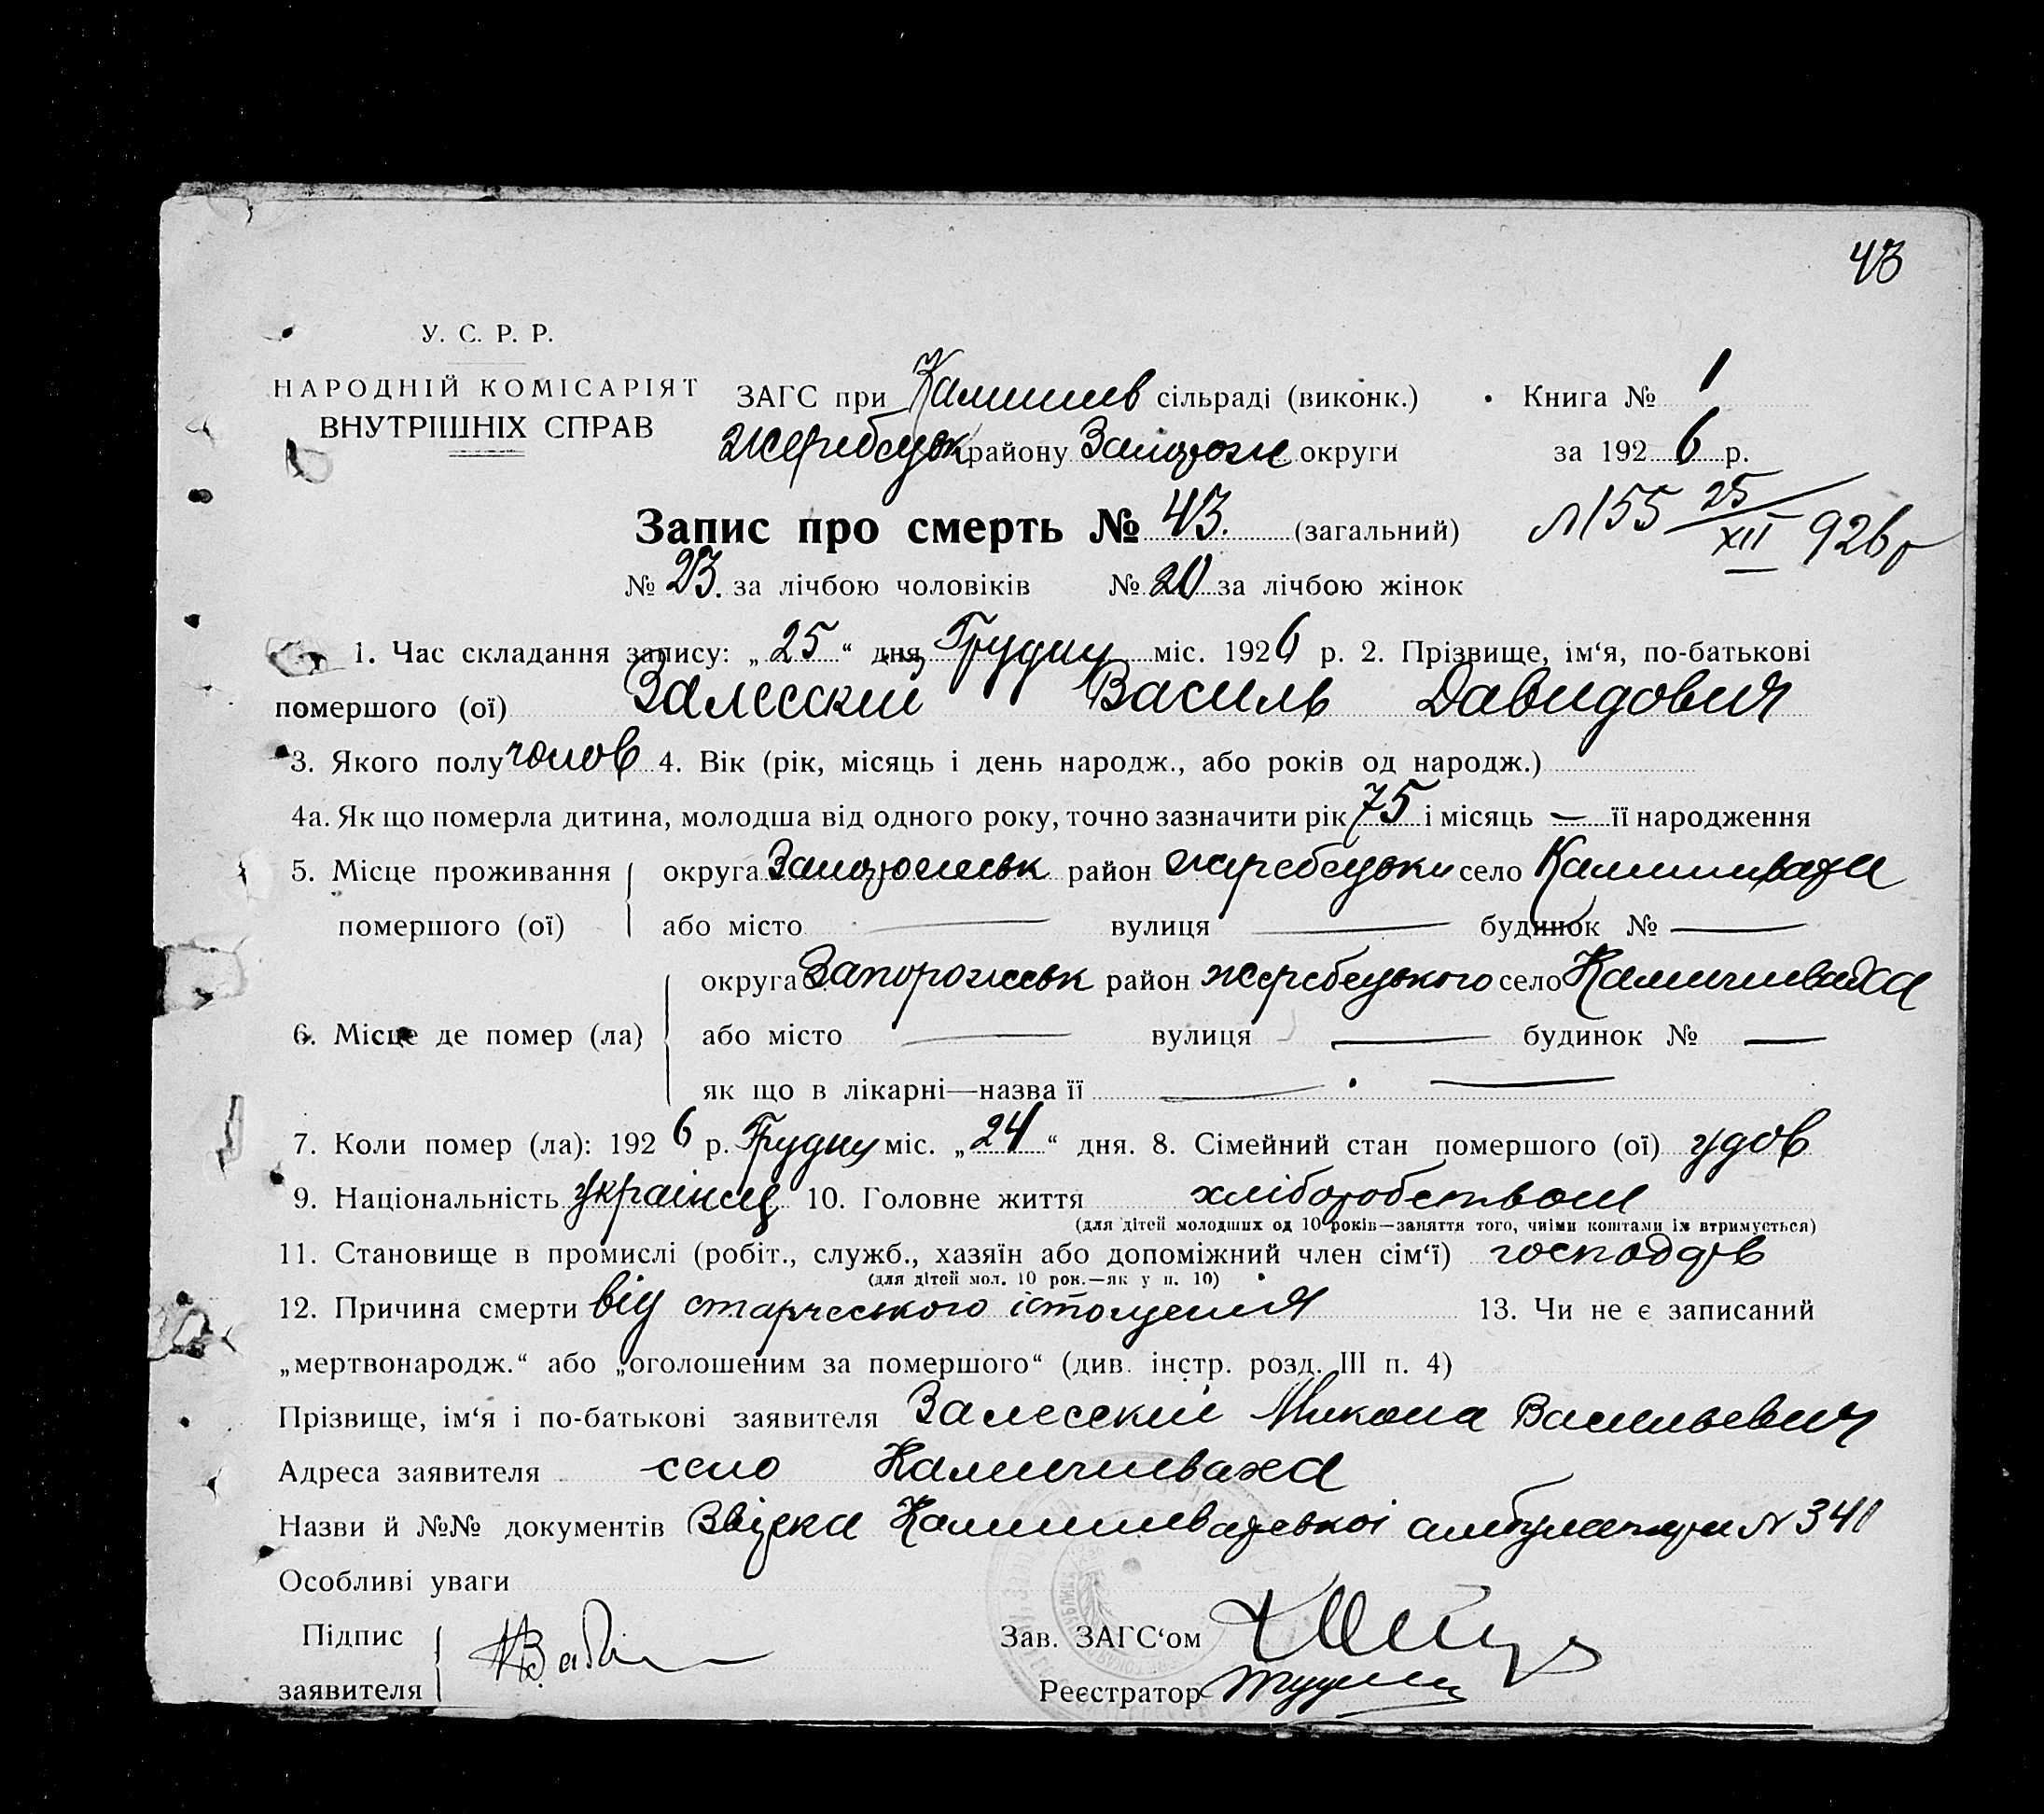 43
У. С. Р. Р.
НАРОДНІЙ КОМІСАРІЯТ
ВНУТРІШНІХ СПРАВ
ЗАГС при Камишев сільраді (виконк.)
Книга № 1
Жеребецьк району Запорож округи
за 1926 р.
Запис про смерть № 43. (загальний)
№155 25/XII 926 р
№ 23. за лічбою чоловіків № 20 за лічбою жінок
1. Час складання запису: „25“ дня Грудну міс. 1926 р. 2. Прізвище, ім‘я, по-батькові
помершого (ої) Залесский Василь Давидович
3. Якого полу чолов 4. Вік (рік, місяць і день народж., або років од народж.)
4а. Як що померла дитина, молодша від одного року, точно зазначити рік 75 і місяць — її народження
5. Місце проживання округа Запорожськ район жеребецьки село Камишеваха
помершого (ої) або місто — вулиця — будинок № —
округа Запорожськ район жеребецького село Камишеваха
6. Місце де помер (ла) або місто — вулиця — будинок № —
як що в лікарні—назва її — —
7. Коли помер (ла): 1926 р. Грудну міс. „24“ дня. 8. Сімейний стан помершого (ої) удов
9. Національність українец 10. Головне життя хліборобством
(для дітей молодших од 10 років—заняття того, чиїми коштами їх втримується)
11. Становище в промислі (робіт., служб., хазяїн або допоміжний член сім‘ї) господарь
(для дітей мол. 10 рок.—як у п. 10)
12. Причина смерти від старческого істощенія 13. Чи не є записаний
„мертвонародж.“ або „оголошеним за помершого“ (див. інстр. розд. III п. 4)
Прізвище, ім‘я і по-батькові заявителя Залесский Микола Васильевич
Адреса заявителя село Камишеваха
Назви й №№ документів Звідка Камишеваської амбулатори № 340
Особливі уваги
Підпис
заявителя
Зав. ЗАГС‘ом
Реєстратор